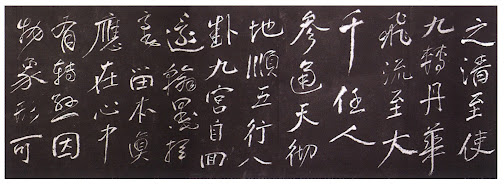 之清至使
九轉丹華
飛流至大
千任人
參通天彻
地順五行八
卦九宮自回
還翰墨揮
毫留本真
應在心中
有轉因
物象形可